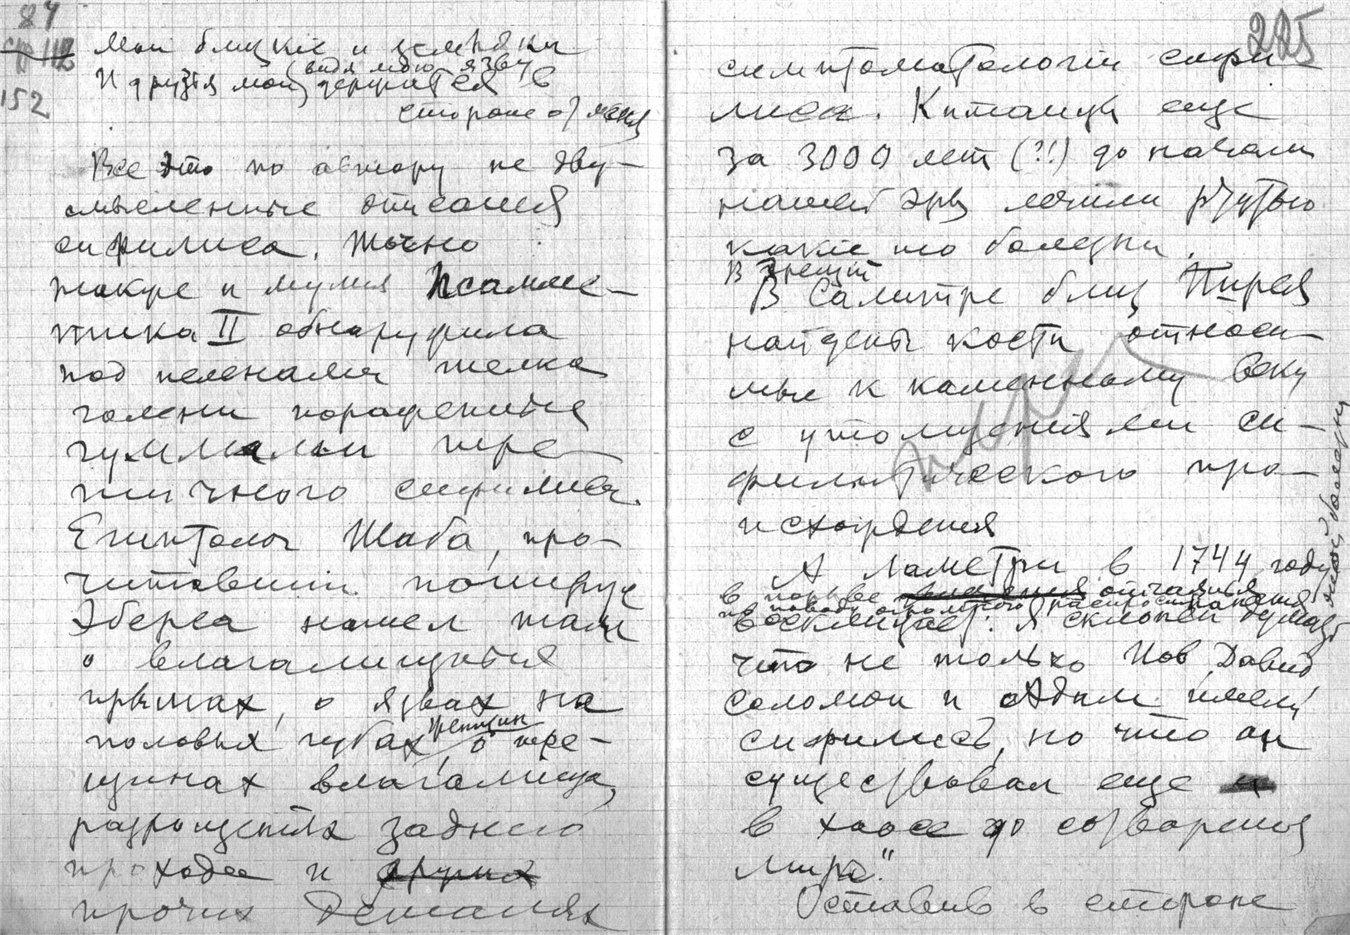 84
стр 112
152
Мои близкие и земляки
И друзья мои (видя мою язву
держатся в
стороне от меня
Все это по автору не дву-
смысленные описания
сифилиса. Точно
также и мумия Псамме-
тиха II обнаружила
под пеленами шелка
голени пораженные
гуммами тре-
тичного сифилиса.
Египтолог Шаба, про-
читавший папирус
Эберса нашел там
о влагалищных
прыщах, о язвах на
половых губах женщин, о тре-
щинах влагалища,
разрощениях заднего
прохода и других
прочих деталях
225
симптоматологии сифи
лиса. Китайцы еще
за 3000 лет (?!) до начала
нашей эры лечили ртутью
какие то болезни.
В Греции
В Саламтре близ Пирея
найдены кости относи-
мые к каменному веку
с утолщениями си-
филитического про-
исхождения
А Ламетри в 1744 году
в порыве отчаянья
по поводу огромного распространения
этой болезни
восклицает: "Я склонен думать
что не только Иов, Давид
Соломон и Адам имели
сифилис, но что он
существовал еще
в хаосе до сотворения
мира."
Оставив в стороне